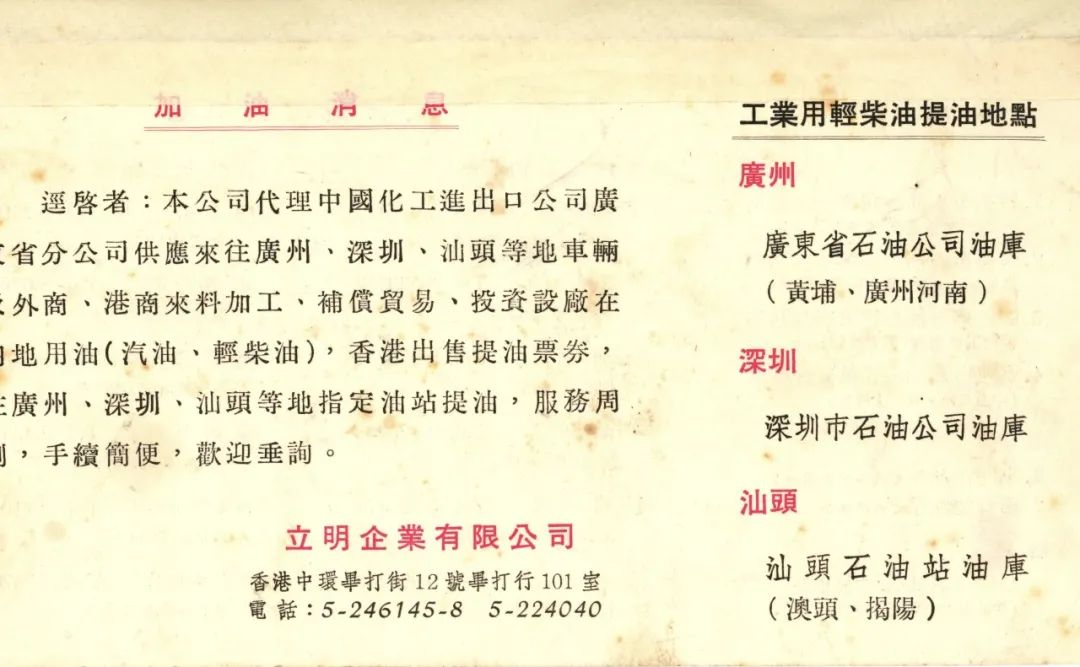 加油消息
逕啓者：本公司代理中國化工進出口公司廣
省分公司供應來往廣州、深圳、汕頭等地車輛
外商、港商來料加工、補償貿易、投資設廠在
地用油(汽油、輕柴油)，香港出售提油票券，
廣州、深圳、汕頭等地指定油站提油，服務周
，手續簡便，歡迎垂詢。
立明企業有限公司
香港中環畢打街12號畢打行101室
電話：5-246145-8 5-224040
工業用輕柴油提油地點
廣州
廣東省石油公司油庫
(黃埔、廣州河南)
深圳
深圳市石油公司油庫
汕頭
汕頭石油站油庫
(澳頭、揭陽)